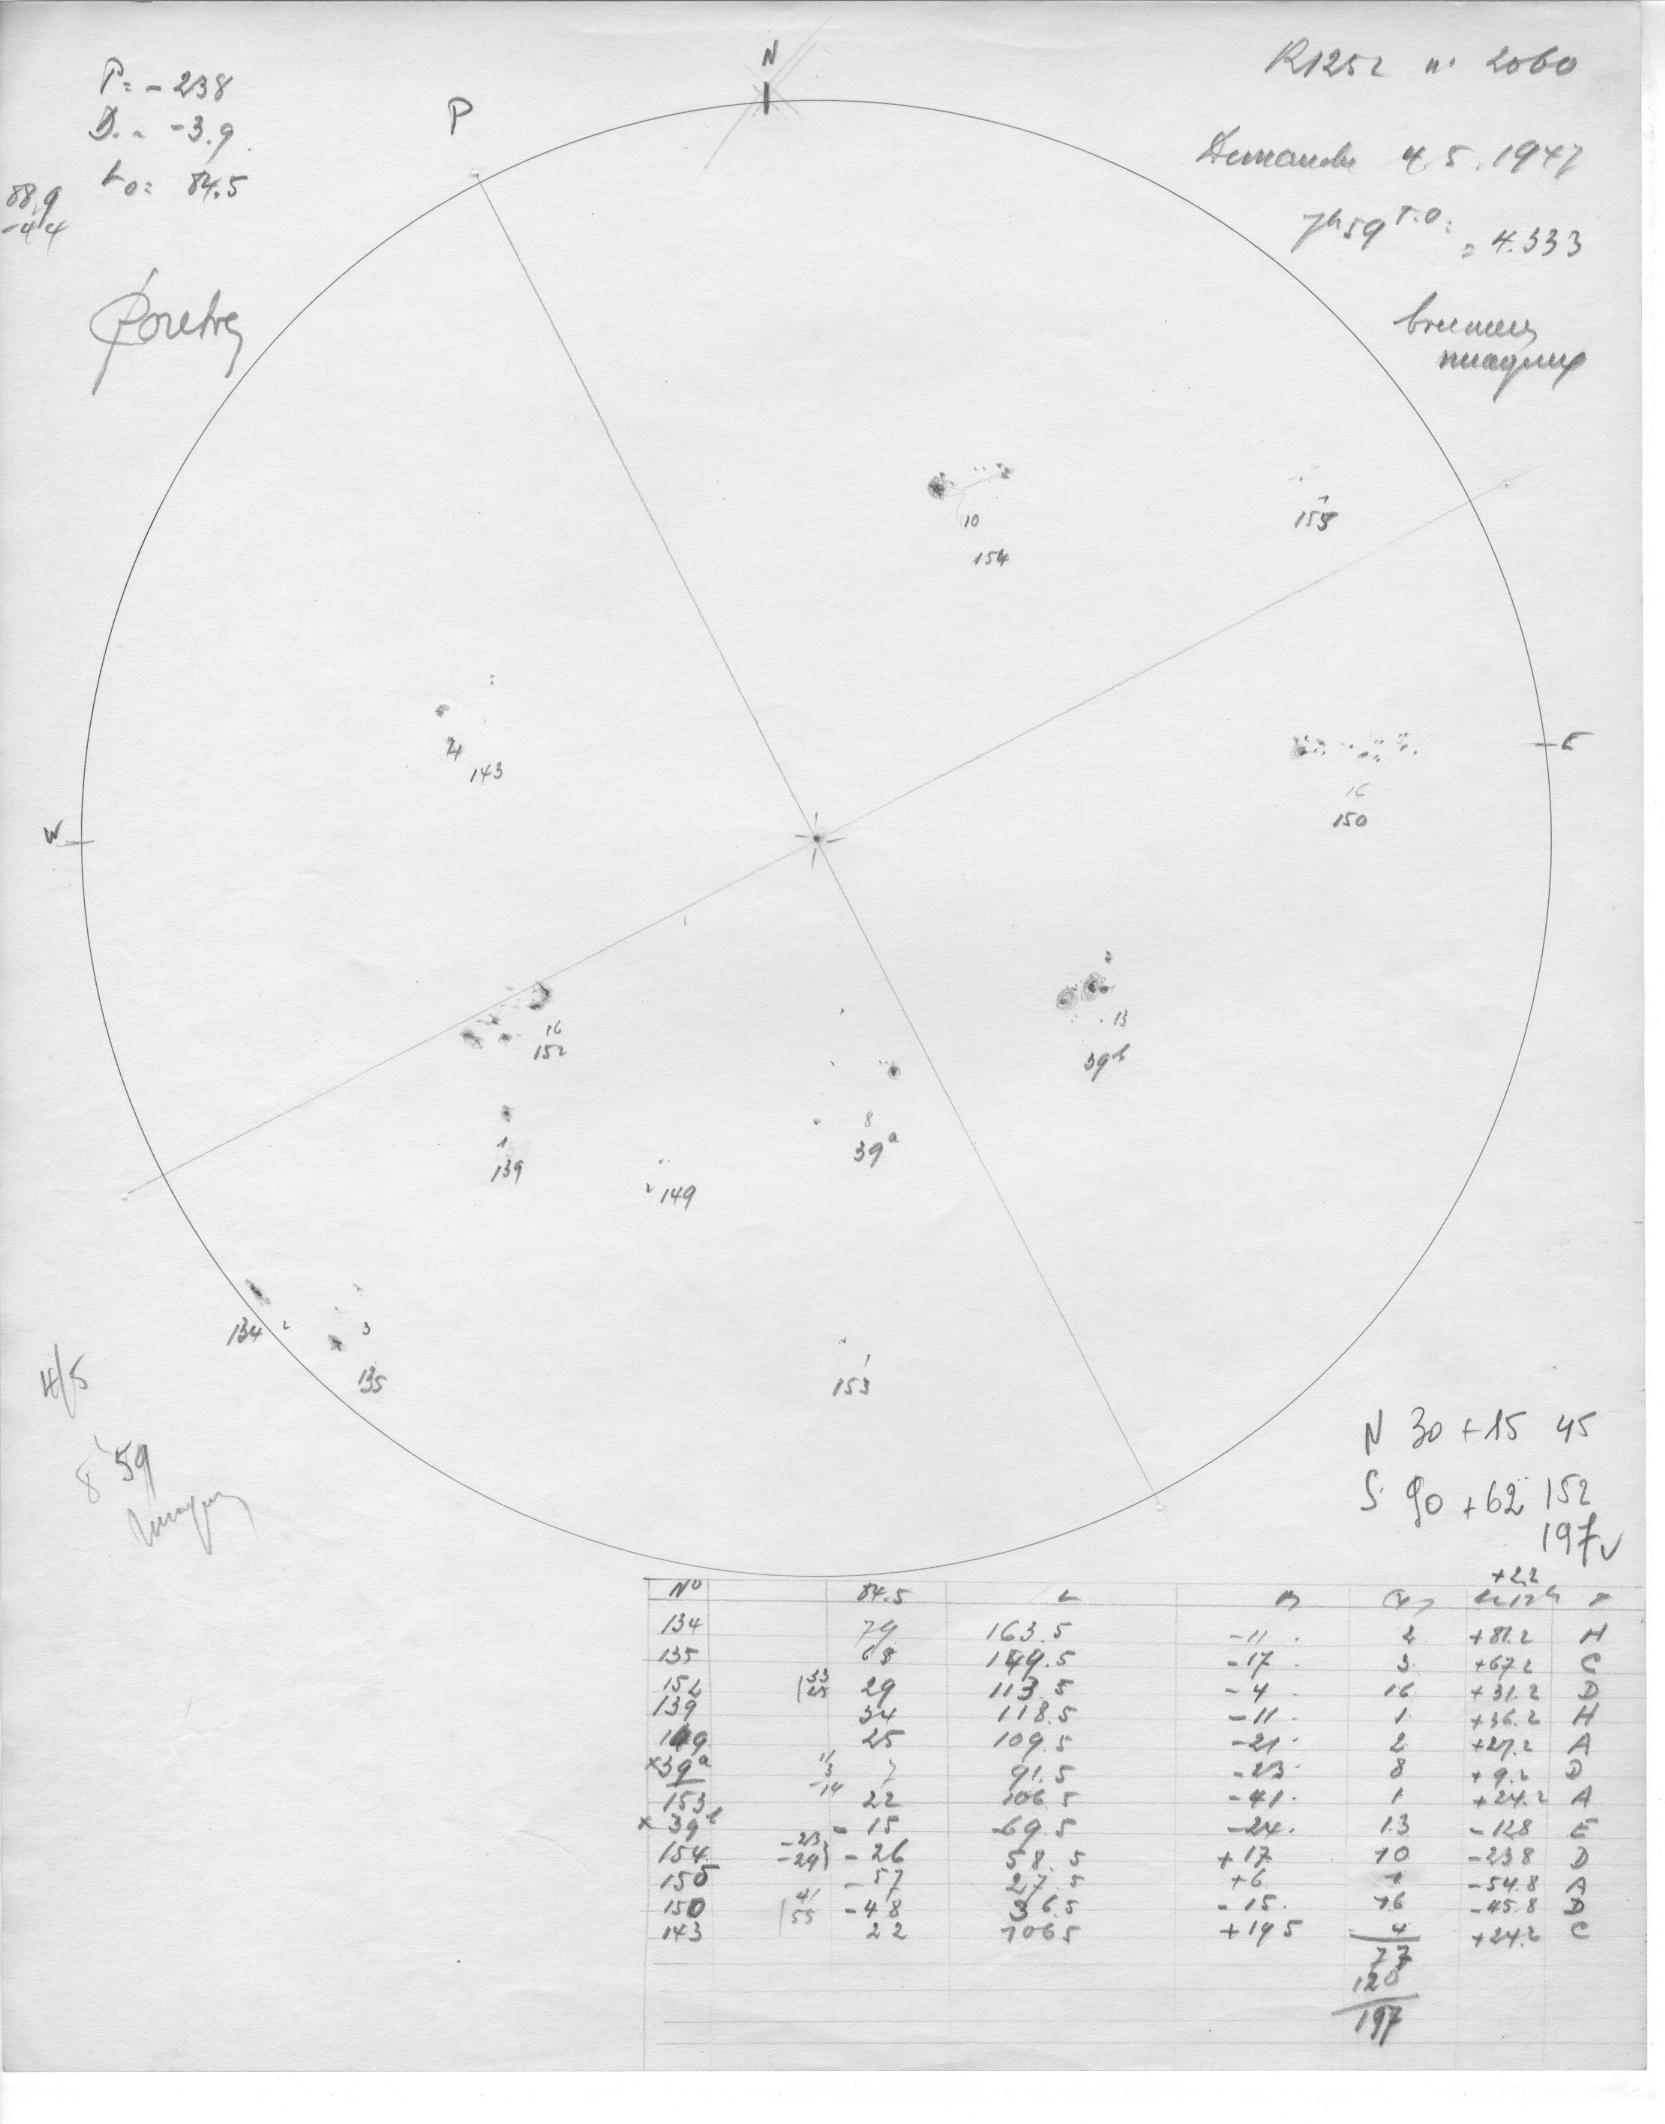 P = -238
D. = -3.9
Lo = 84.5
88.9
-44
P
N
R1252 n. 2060
Dimanche 4.5.1947
7h59 T.O.
= 4.333
brumeux
nuageux
10
154
1
155
4
143
W
E
16
150
16
152
13
39b
8
39a
1
139
2 149
134 2
3
135
1
153
4/5
8 59
nuageux
N 30 + 15 45
S 90 + 62 152
197 v
+2.2
No 84.5 L B
134 79 163.5 -11. 2 +81.2 H
135 68 149.5 -17. 3 +67.2 C
152 33 25 29 113.5 -4. 16 +31.2 D
139 34 118.5 -11. 1 +36.2 H
149 25 109.5 -21. 2 +27.2 A
x39a 11 3 -14 7 91.5 -23. 8 +9.2 D
153 22 106.5 -41. 1 +24.2 A
x39b -15 69.5 -24. 13 -128 E
154 -23 -29 -26 58.5 +17 10 -238 D
155 -57 27.5 +6 1 -54.8 A
150 41 55 -48 36.5 -15. 16 -45.8 D
143 22 1065 +195 4 +24.2 C
77
120
197